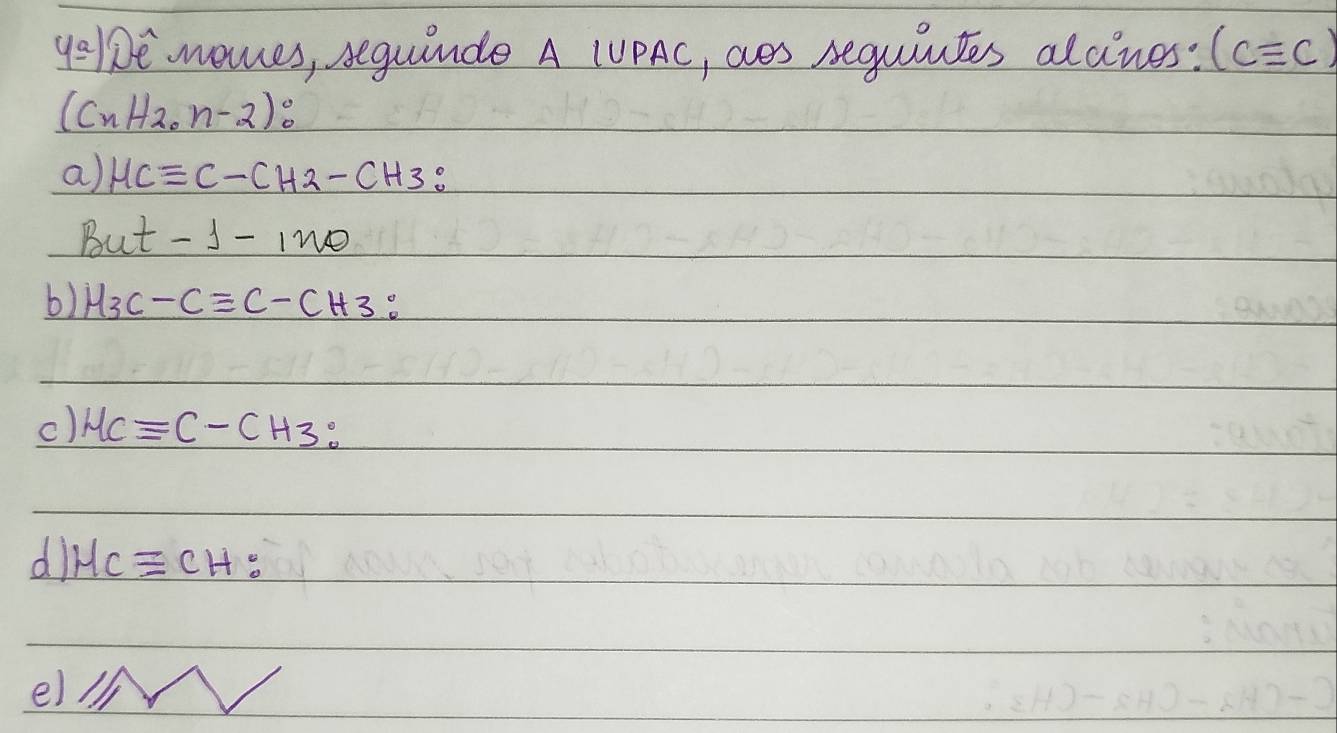 4ª) Dê nomes, seguindo A IUPAC, aos seguintes alcinos: (C≡C)
(CnH2.n-2):
a) HC≡C-CH2-CH3:
But-1-ino
b) H3C-C≡C-CH3:
c) HC≡C-CH3:
d) HC≡CH:
e)